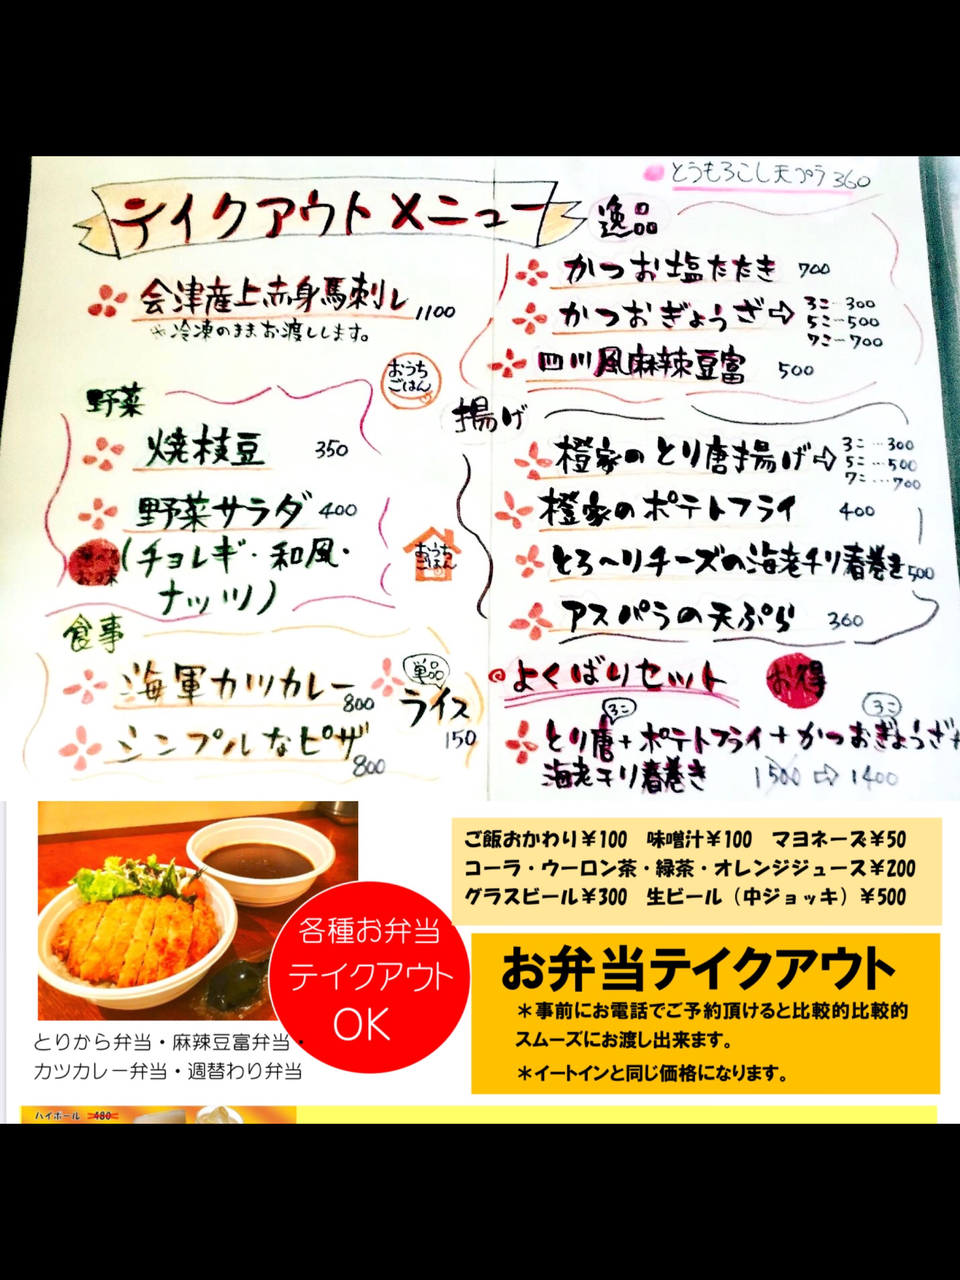 とうもろこし天プラ360
テイクアウトメニュー
会津産上赤身馬刺し 1100
※冷凍のままお渡しします。
おうち
ごはん
野菜
焼枝豆 350
野菜サラダ 400
(チョレギ・和風・
ナッツ)
おうち
ごはん
食事
海軍カツカレー 800
単品
ライス
150
シンプルなピザ
800
逸品
かつお塩たたき 700
かつおぎょうざ⇨ 3こ…300
5こ…500
7こ…700
四川風麻辣豆富 500
揚げ
橙家のとり唐揚げ⇨ 3こ…300
5こ…500
7こ…700
橙家のポテトフライ 400
とろ〜りチーズの海老チリ春巻き500
アスパラの天ぷら 360
よくばりセット お得
3こ 3こ
とり唐+ポテトフライ+かつおぎょうざ+
海老チリ春巻き 1500⇨1400
各種お弁当
テイクアウト
OK
とりから弁当・麻辣豆富弁当・
カツカレー弁当・週替わり弁当
ご飯おかわり¥100 味噌汁¥100 マヨネーズ¥50
コーラ・ウーロン茶・緑茶・オレンジジュース¥200
グラスビール¥300 生ビール（中ジョッキ）¥500
お弁当テイクアウト
＊事前にお電話でご予約頂けると比較的比較的
スムーズにお渡し出来ます。
＊イートインと同じ価格になります。
ハイボール 480